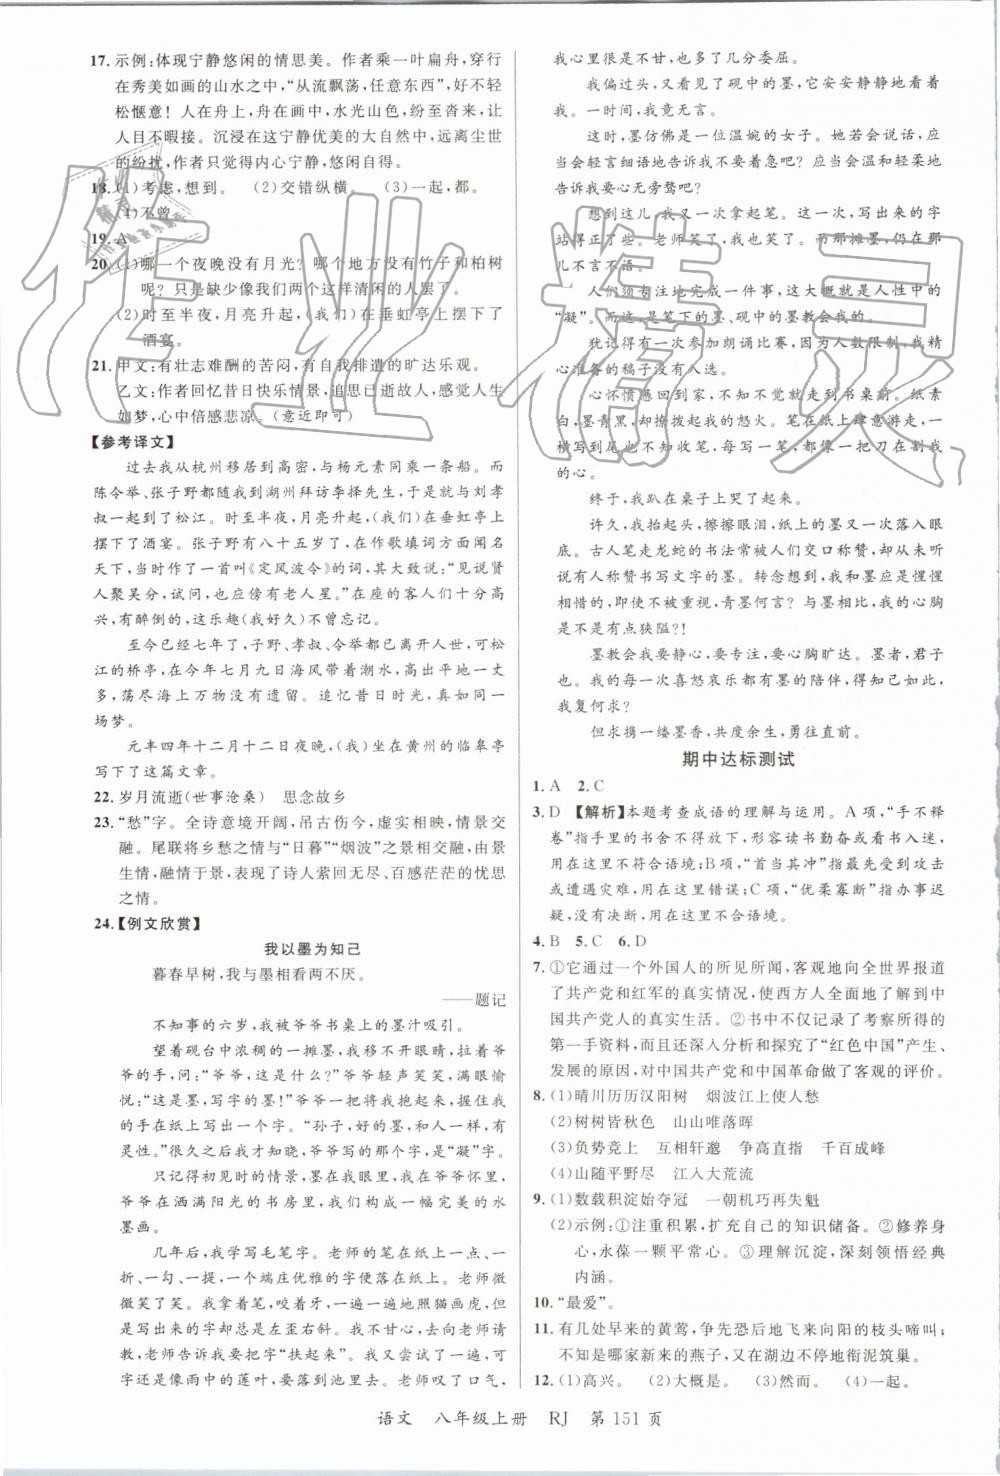 17. 示例:体现宁静悠闲的情思美。作者乘一叶扁舟,穿行
在秀美如画的山水之中,“从流飘荡,任意东西”,好不轻
松惬意！人在舟中,舟在画中,水光山色,纷至沓来,让
人目不暇接。沉浸在这宁静优美的大自然中,远离尘世
的纷扰,作者只觉得内心宁静,悠闲自得。
18. (1)考虑,想到。 (2)交错纵横。 (3)一起,都。
(4)不曾。
19. A
20. (1)哪一个夜晚没有月光？哪个地方没有竹子和柏树
呢？只是缺少像我们两个这样清闲的人罢了。
(2)时至半夜,月亮升起,(我们)在垂虹亭上摆下了
酒宴。
21. 甲文:有壮志难酬的苦闷,有自我排遣的旷达乐观。
乙文:作者回忆昔日快乐情景,追思已逝故人,感觉人生
如梦,心中倍感悲凉。(意近即可)
【参考译文】
过去我从杭州移居到高密,与杨元素同乘一条船。而
陈令举、张子野都随我到湖州拜访李择先生,于是就与刘孝
叔一起到了松江。时至半夜,月亮升起,(我们)在垂虹亭上
摆下了酒宴。张子野有八十五岁了,在作歌填词方面闻名
天下,当时作了一首叫《定风波令》的词,其大概是:“见说贤
人聚吴分,试问,也应傍有老人星。”在座的客人们十分高
兴,有醉倒的,这乐趣(我好久)不曾忘记。
至今已经七年了,子野、孝叔、令举都已离开人世,可松
江的桥亭,在今年七月九日海风带着潮水,高出平地一丈
多,荡尽海上万物没有遗留。追忆昔日时光,真如同一
场梦。
元丰四年十二月十二日夜晚,(我)在黄州的临皋亭
写下了这篇文章。
22. 岁月流逝(世事沧桑) 思念故乡
23. “愁”字。全诗意境开阔,吊古伤今,虚实相映,情景交
融。尾联将乡愁之情与“日暮”“烟波”之景融为一体,由景
生情,融情于景,表现了诗人萦回无尽、百感茫茫的忧思
之情。
24.【例文欣赏】
我以墨为知己
暮春早树,我与墨相看两不厌。
——题记
不知事的六岁,我被爷爷书桌上的墨汁吸引。
望着砚台中浓稠的一摊墨,我移不开眼睛,拉着爷
爷的手,问:“爷爷,这是什么?”爷爷轻声笑笑,满眼愉
悦:“这是墨,写字的墨!”爷爷一把将我抱起来,握住我
的手在纸上写出一个字。“孙子,好好看,墨和人一样,有
灵性。”很久以后我才知晓,爷爷写的,是“凝”字。
只记得初见时的情景,墨在我眼里,我在爷爷怀里,
爷爷在洒满阳光的书房里,我们构成一幅完美的水
墨画。
几年后,我学写毛笔字。老师的笔在纸上一点、一
折、一勾、一提,一个端庄优雅的字便跃然纸上。老师微
微笑了笑。我拿着笔,咬着牙,一遍一遍照猫画虎,但是
写出来的字却总是左歪右斜。我不甘心,去向老师请
教,老师告诉我要把字“扶起来”。可不论我怎么写,字
还是像雨中的莲叶,要落到池里。最后我叹了口气,
我心里很是不甘,也多了几分委屈。
我偏过头,又看见了砚中的墨,它安安静静地看着
我。一时间,我竟无言。
这时,墨仿佛是一位温婉的女子。她若会说话,应
当会轻言细语地告诉我不要灰心吧？应当会温和轻柔地
告诉我要心无旁骛吧？
想到这儿,我又一次拿起笔。这一次,写出来的字
站得正了些。老师笑了,我也笑了。而那摊墨,仍在那
儿不言不语。
人们须专注地完成一件事,这大概就是人性中的
“凝”。而这,是笔下的墨、砚中的墨教会我的。
犹记得有一次参加朗诵比赛,因为人数限制,我精
心准备的稿子没有入选。
心怀愤懑回到家,不知不觉走到书桌前。纸素
白,墨青黑,却抑制不住我的怒火。笔在纸上肆意游走,一
横写到尾也不知收笔,每一笔、每一画,都像一把刀在割我
的心。
终于,我趴在桌子上哭了起来。
许久,我抬起头,擦擦眼泪,纸上的墨又一次落入眼
底。古人笔走龙蛇的书法常被人们交口称赞,却从未听
说有人称赞书写文字的墨。转念想到,与墨应是惺惺
相惜的,即使不被重视,青墨何言？与墨相比,我的心胸
是不是有点狭隘?!
墨教会我要静心,要专注,要心胸旷达。墨者,君子
也。我的每一次喜怒哀乐都有墨的陪伴,得知己如此,
我复何求？
但求携一缕墨香,共度余生,勇往直前。
期中达标测试
1. A 2. C
3. D 【解析】本题考查成语的理解与运用。A项,“手不释
卷”指手里的书舍不得放下,形容读书勤奋或看书入迷,
用在这里不符合语境;B项,“首当其冲”指最先受到攻击
或遭遇灾难,用在这里错误;C项,“优柔寡断”指办事迟
疑,没有决断,用在这里不合语境。
4. B 5. C 6. D
7. ①它通过一个外国人的所见所闻,客观地向全世界报道
了共产党和红军的真实情况,使西方人全面地了解到中
国共产党人的真实生活。②书中不仅记录了考察所得的
第一手资料,而且还深入分析和探究了“红色中国”产生、
发展的原因,对中国共产党和中国革命做了客观的评价。
8. (1)晴川历历汉阳树 烟波江上使人愁
(2)树树皆秋色 山山唯落晖
(3)负势竞上 互相轩邈 争高直指 千百成峰
(4)山随平野尽 江入大荒流
9. (1)数载积淀始夺冠 一朝机巧再失魁
(2)示例:①注重积累,扩充自己的知识储备。②修养身
心,永葆一颗平常心。③理解沉淀,深刻领悟经典
内涵。
10. “最爱”。
11. 有几处早来的黄莺,争先恐后地飞来向阳的枝头啼叫;
不知是哪家新来的燕子,又在湖边不停地衔泥筑巢。
12. (1)高兴。 (2)大概是。 (3)然而。 (4)一起。
语文 八年级上册 RJ 第 151 页
作业精灵